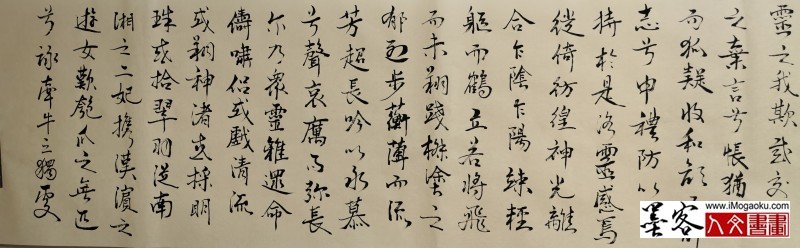 靈之我欺感交
之棄言兮悵猶
而狐疑收和顏
志兮申禮防以
持於是洛靈感焉
徙倚彷徨神光離
合乍陰乍陽竦輕
軀而鶴立若將飛
而未翔踐椒塗之
郁烈步蘅薄而流
芳超長吟以永慕
兮聲哀厲而彌長
尔乃眾靈雜遝命
儔嘯侶或戲清流
或翔神渚或採明
珠或拾翠羽從南
湘之二妃攜漢濱之
遊女歎匏瓜之無匹
兮詠牽牛之獨處
www.iMogaoku.com
墨客 人文書畫